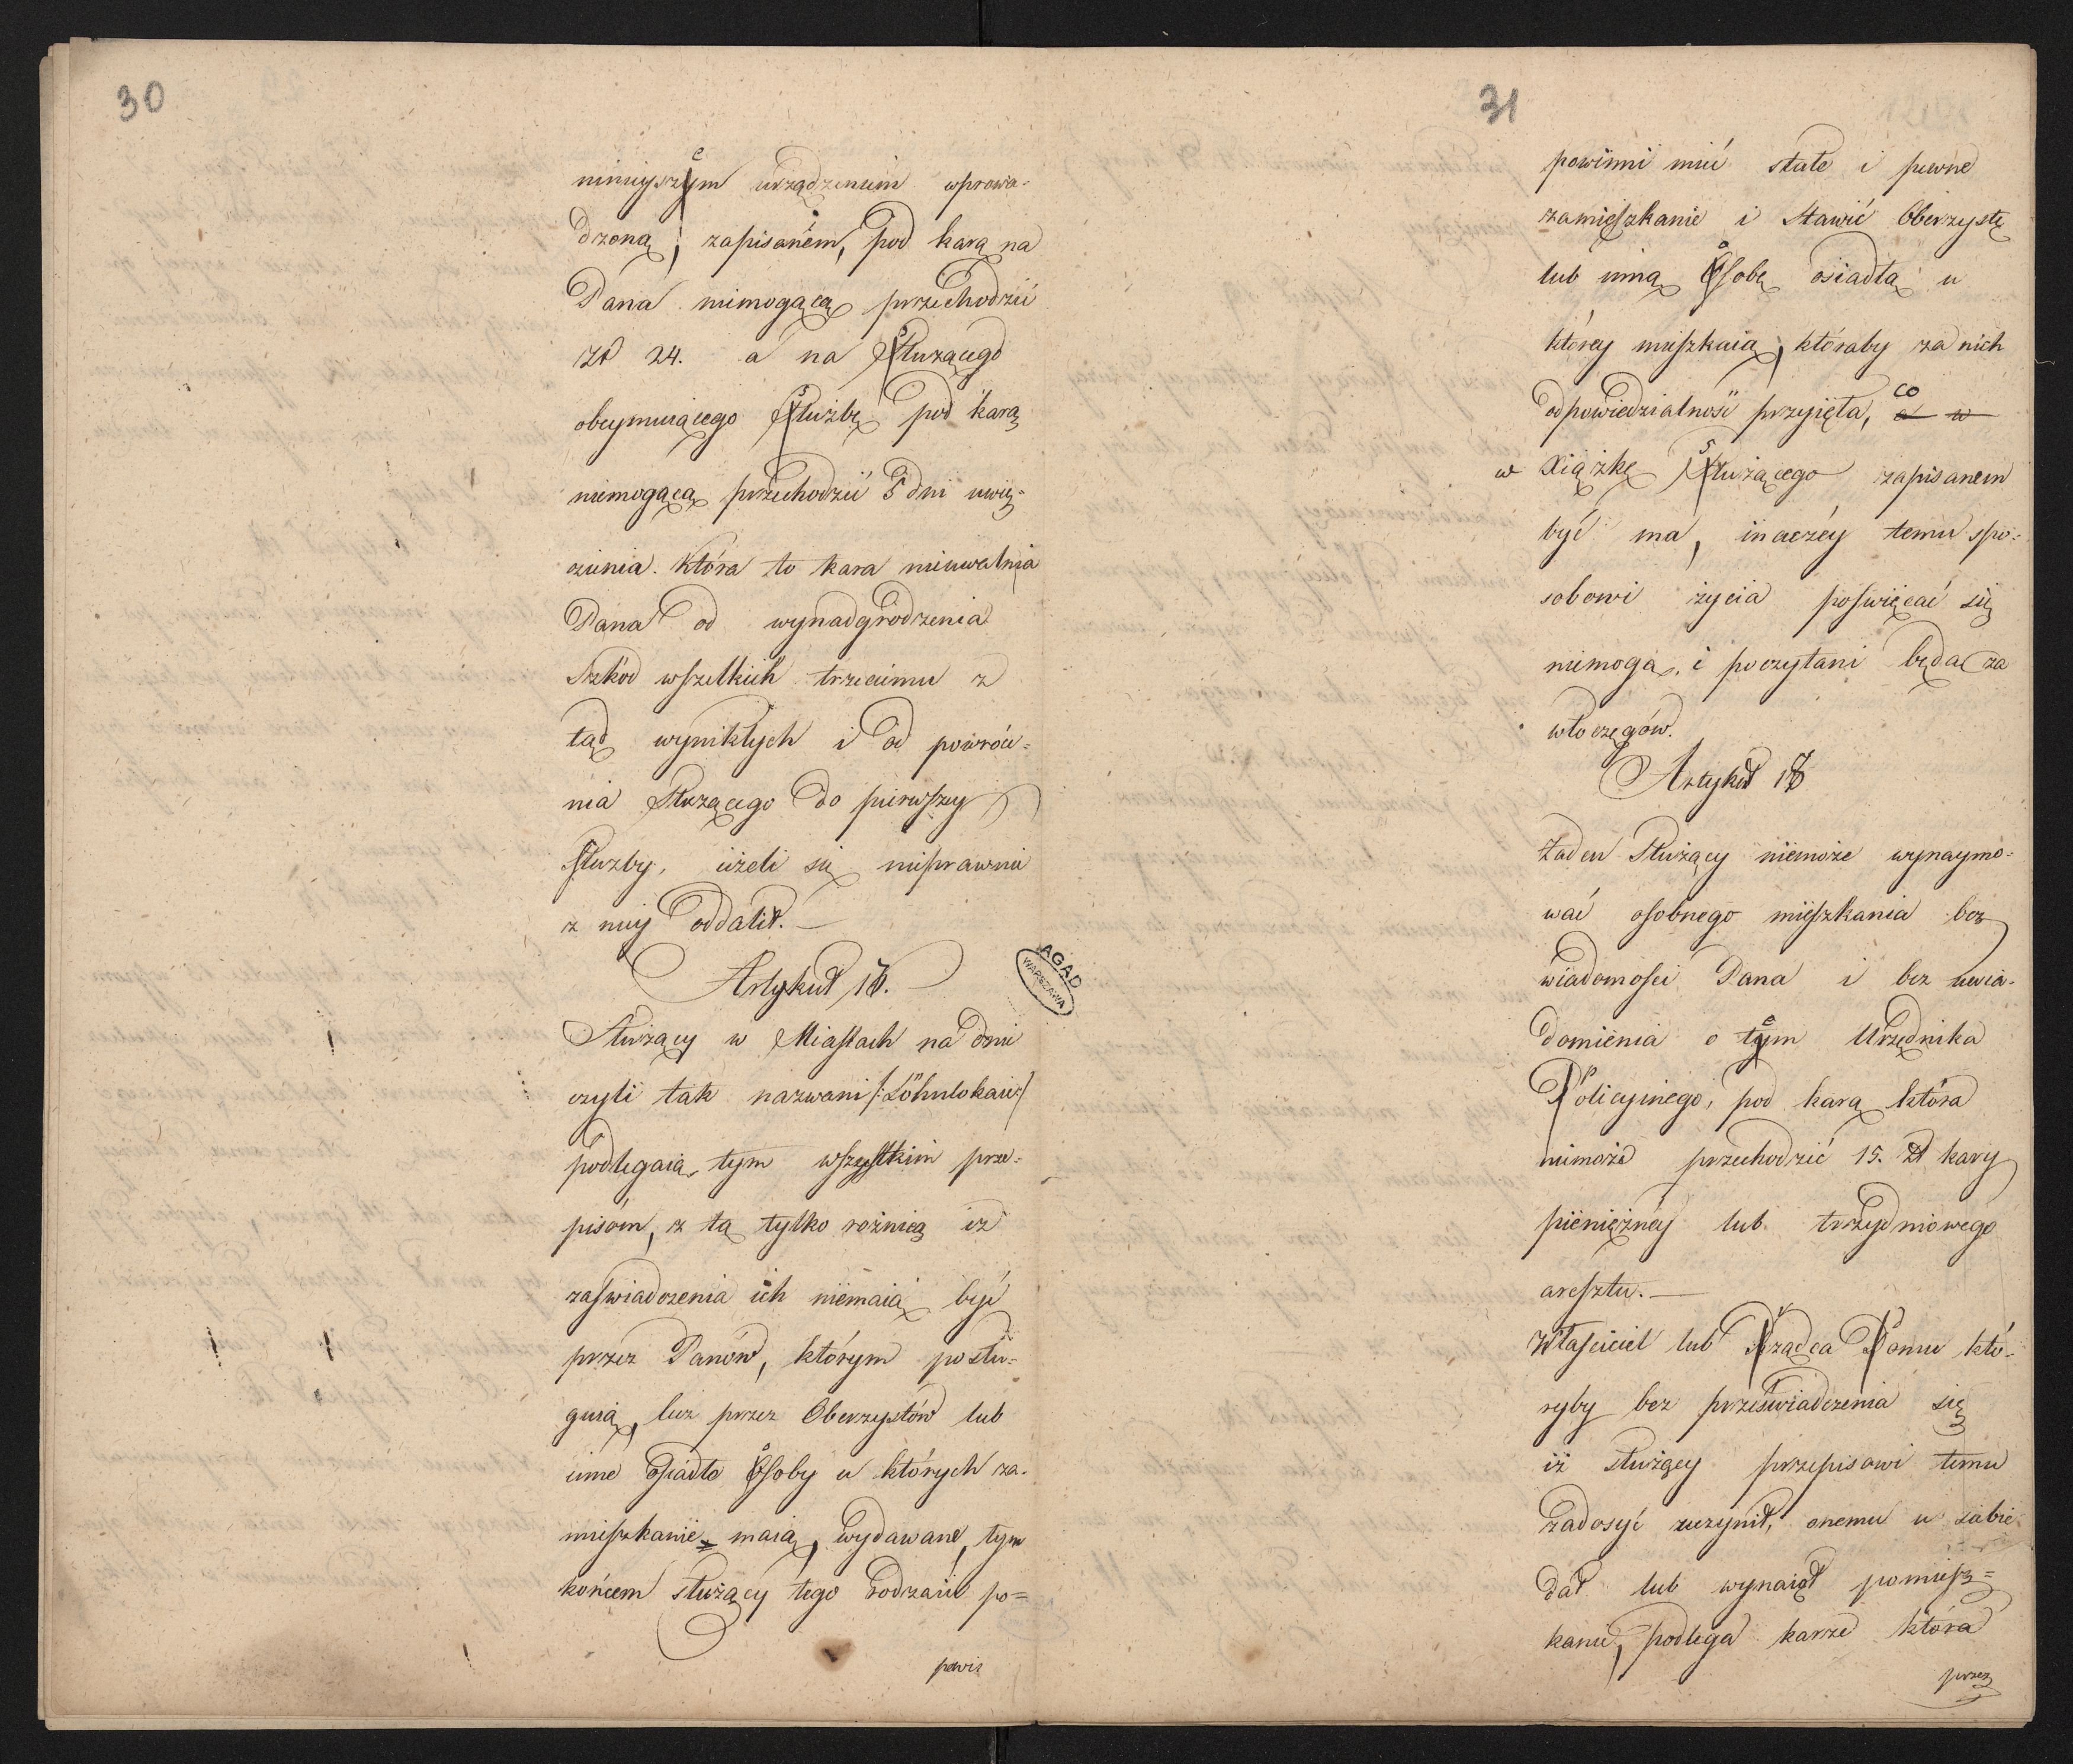 30
ninieyszem urządzeniem wprowa-
dzoną, zapisanem, pod karą na
Pana niemogącą przechodzić
zł 24. a na służącego
obeymuiącego służbę pod karą
niemogącą przechodzić 5 dni uwię-
zienia. która to kara nieuwalnia
Pana od wynadgrodzenia
Szkód wszelkich trzeciemu z
tąd wynikłych i od powróce-
nia Służącego do pierwszey
Służby, ieżeli się nieprawnie
z niey oddalił. —
Artykuł 17.
Służący w Miastach na dnie
czyli tak nazwani /:Löhnlokaie:/
podlegaią tym wszystkim prze-
pisom, z tą tylko rożnicą iż
zaswiadczenia ich niemaią być
przez Panów, którym posłu-
guią, lecz przez Oberzystów lub
inne osiadłe osoby u których za-
mieszkanie maią, wydawane, tym
końcem służący tego rodzaiu po=
powin
AGAD
WARSZAWA
31
powinni mieć stałe i pewne
zamieszkanie i stawić Oberzystę
lub inną osobę osiadłą u
którey mieszkaią, któraby za nich
odpowiedzialność przyięła, co
w Xiążkę służącego zapisanem
być ma, inaczéy temu spo-
sobowi życia poświęcać się
niemogą, i poczytani będą za
włoczęgów.
Artykuł 18
Żaden Służący niemoże wynaymo-
wać osobnego mieszkania bez
wiadomości Pana i bez uwia-
domienia o tem Urzędnika
policyinego, pod karą która
niemoże przechodzić 15. zł kary
pieniężnéy lub trzydniowego
aresztu. —
Właściciel lub rządca domu któ-
ryby bez przeświadczenia się
iż służący przepisowi temu
zadosyć uczynił, onemu u siebie
dał lub wynaiął pomiesz=
kanie, podlega karze która
przez